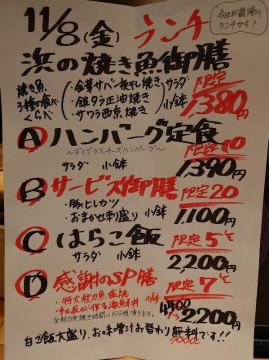 11/8(金) ランチ
今日が最後のランチかも?
浜の焼き魚御膳
焼き魚3種の食べくらべ
・金華サバ一夜干し焼き
・銀ダラ正油焼き
・サワラ西京焼き
サラダ 小鉢
限定
1,380円
A ハンバーグ定食
〜デミグラスチーズハンバーグ〜
サラダ 小鉢
限定10
1,390円
B サービス御膳
・豚ヒレカツ
・おまかせ刺盛り 小鉢
限定20
1,100円
C はらこ飯
サラダ 小鉢
限定5
2,200円
D 感謝のSP膳
・特大秋刀魚塩焼
小鉢
限定7
2200円
白ご飯大盛り、お味噌汁お替わり無料です!!